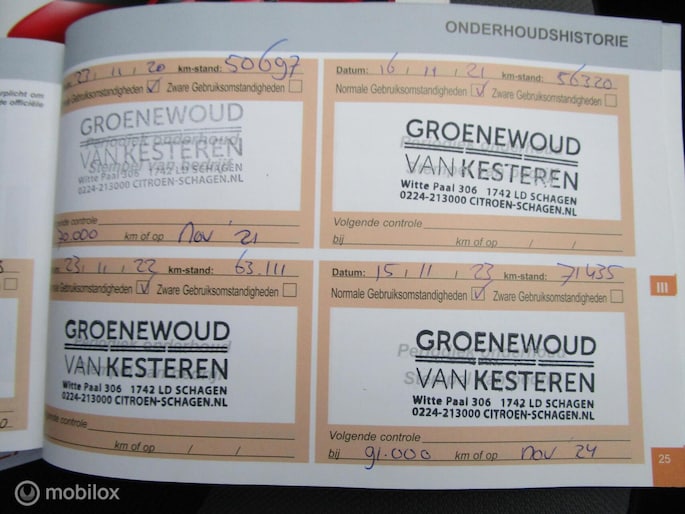 ONDERHOUDSHISTORIE
rplicht om
de officiële
23, 11, 20 km-stand: 50697
Normale Gebruiksomstandigheden ☑ Zware Gebruiksomstandigheden ☐
Periodiek onderhoud
Stempel van bedrijf
GROENEWOUD
VAN KESTEREN
Witte Paal 306 1742 LD SCHAGEN
0224-213000 CITROEN-SCHAGEN.NL
gende controle
70.000 km of op nov '21
Datum: 16, 11, 21 km-stand: 56320
Normale Gebruiksomstandigheden ☑ Zware Gebruiksomstandigheden ☐
Periodiek onderhoud
GROENEWOUD
VAN KESTEREN
Witte Paal 306 1742 LD SCHAGEN
0224-213000 CITROEN-SCHAGEN.NL
Volgende controle
bij km of op / /
23, 11, 22 km-stand: 63.111
male Gebruiksomstandigheden ☑ Zware Gebruiksomstandigheden ☐
Periodiek onderhoud
GROENEWOUD
VAN KESTEREN
Witte Paal 306 1742 LD SCHAGEN
0224-213000 CITROEN-SCHAGEN.NL
gende controle
km of op / /
Datum: 15, 11, 23 km-stand: 71435
Normale Gebruiksomstandigheden ☑ Zware Gebruiksomstandigheden ☐
Periodiek onderhoud
GROENEWOUD
VAN KESTEREN
Witte Paal 306 1742 LD SCHAGEN
0224-213000 CITROEN-SCHAGEN.NL
Volgende controle
bij 91.000 km of op nov 24
III
25
mobilox